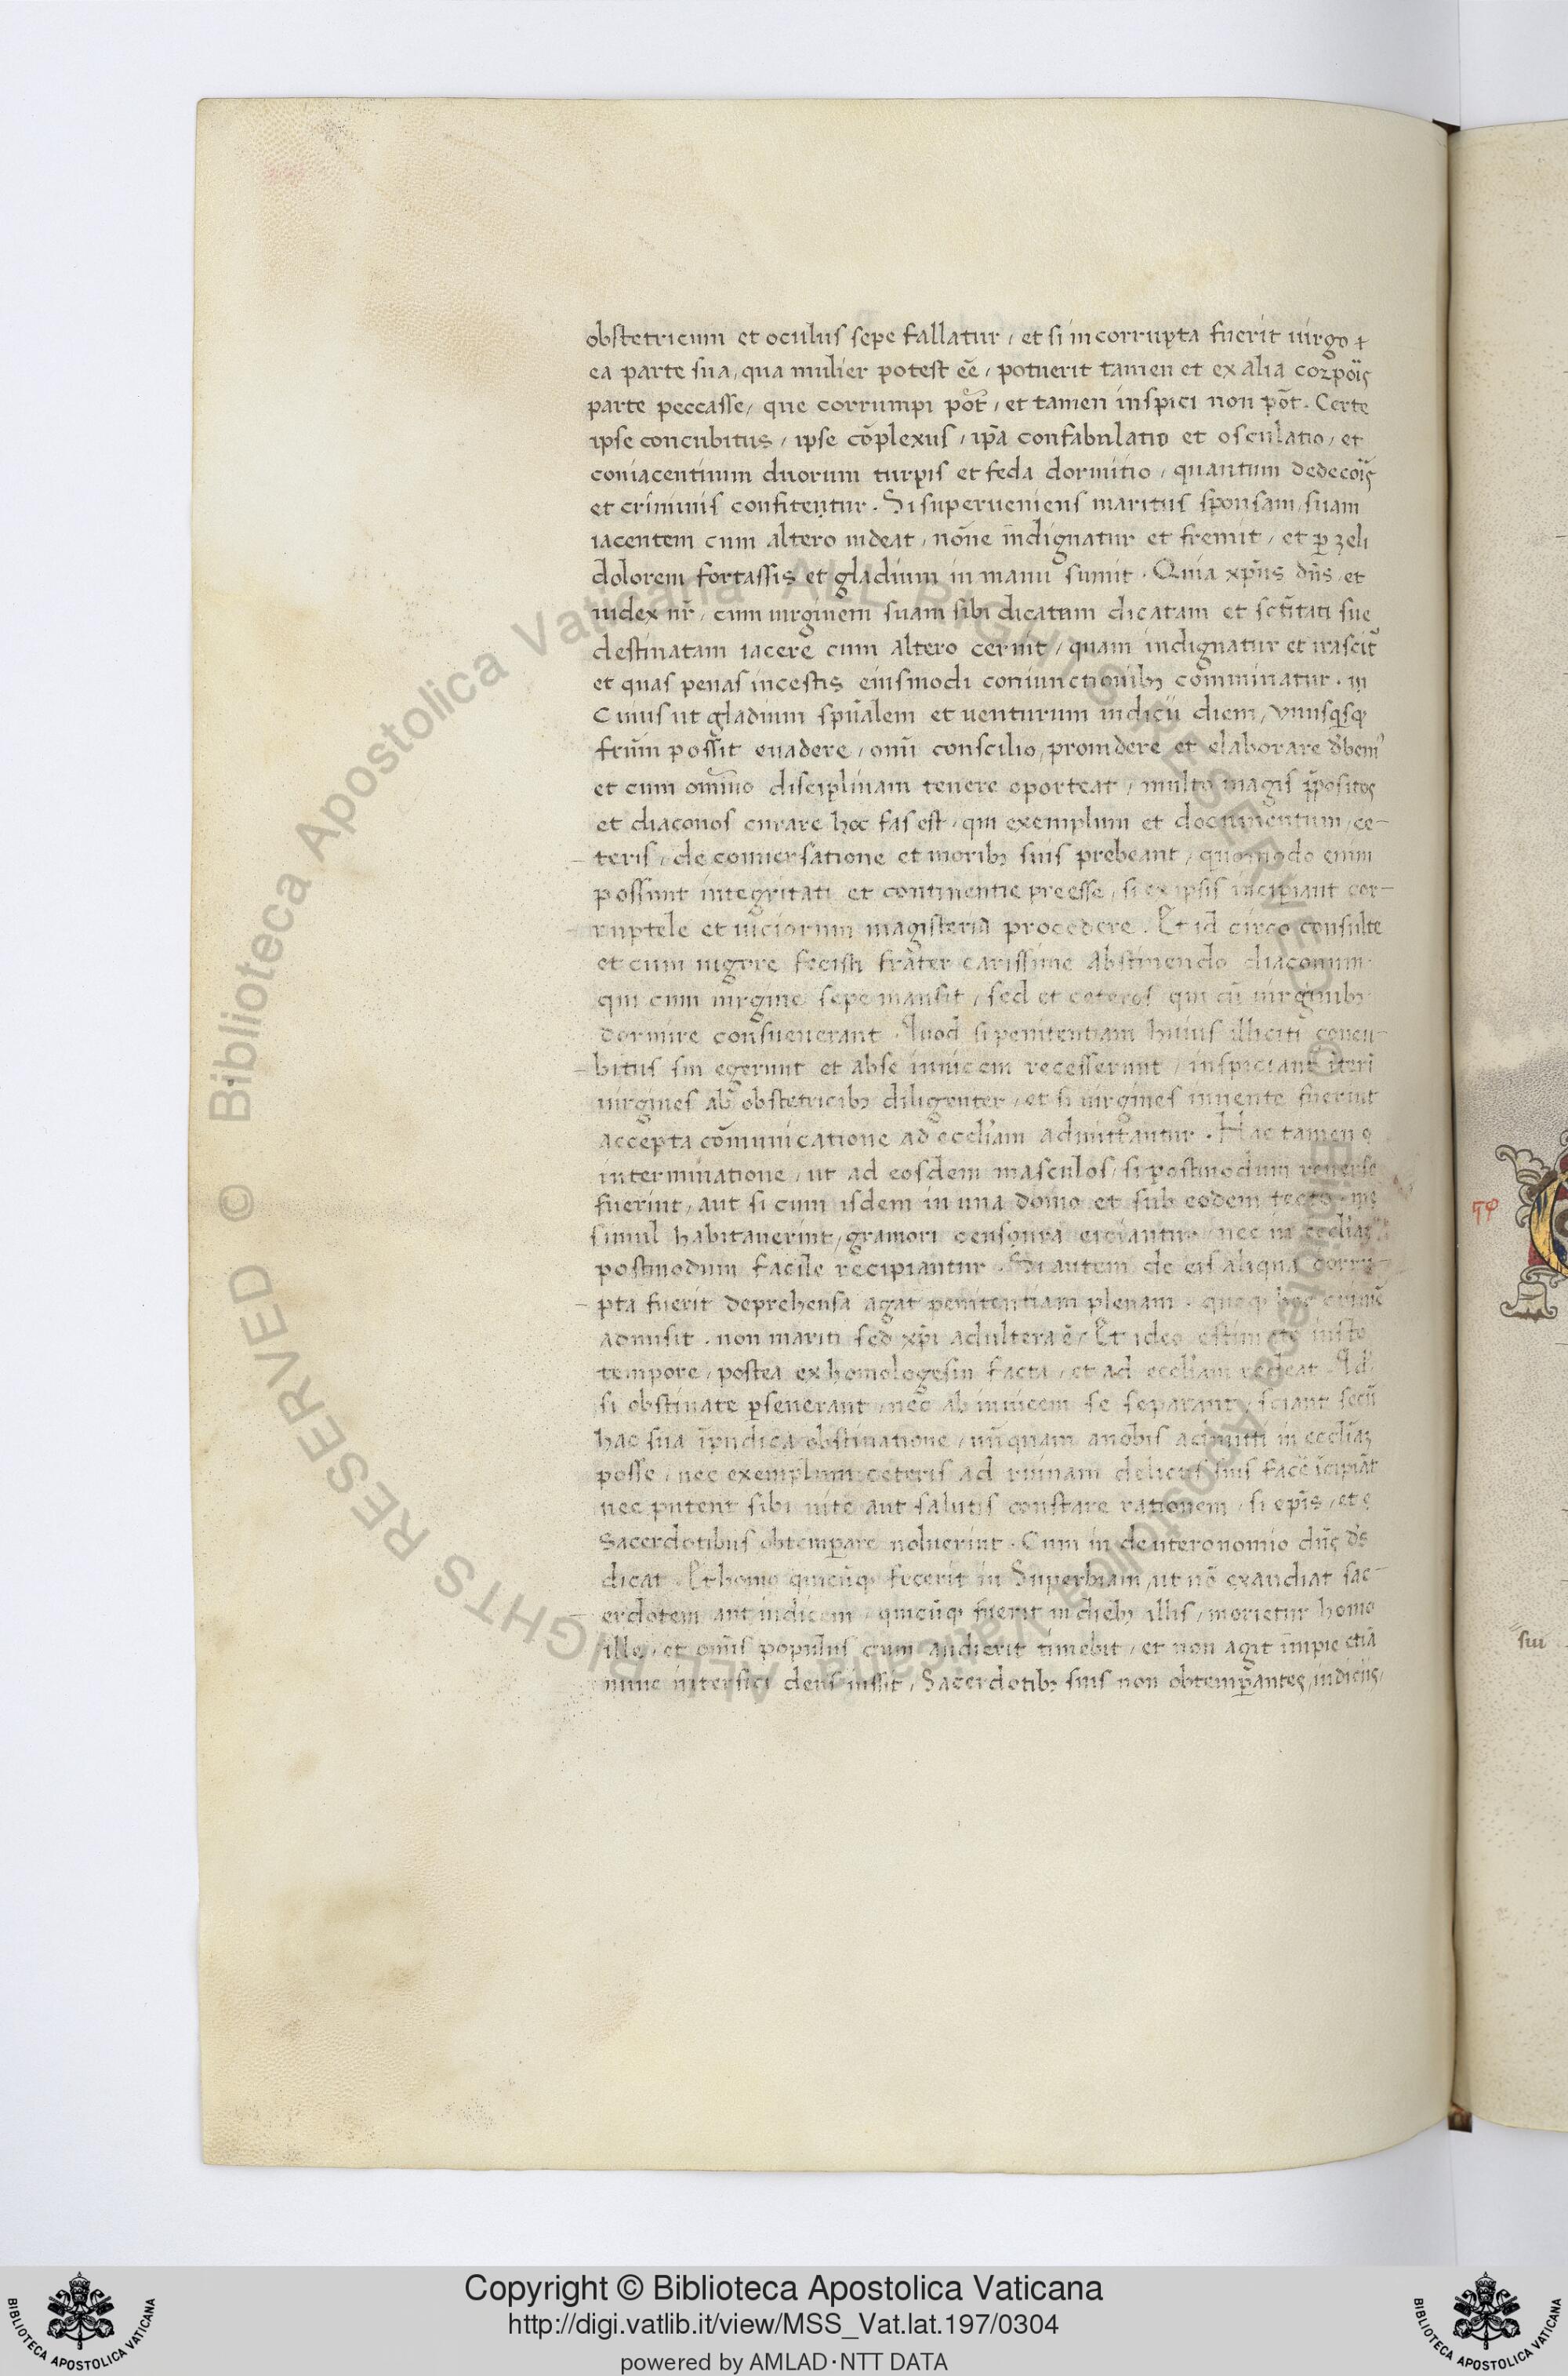 obstetricum et oculus sepe fallatur / et si incorrupta fuerit uirgo
ea parte sua, qua mulier potest eē / potuerit tamen et ex alia
parte peccasse, que corrumpi pōt / et tamen inspici non pōt. Certe
ipse concubitus / ipse cōplexus / ip̄a confabulatio et osculatio / et
coniacentium duorum turpis et feda dormitio / quantum
et criminis confitentur. Si superueniens maritus sponsam suam
iacentem cum altero uideat, nōne indignatur et fremit / et ꝑ zeli
dolorem fortassis et gladium in manu sumit. Quia xp̄us dn̄s, et
iudex nr̄, cum uirginem suam sibi dicatam dicatam et sue
destinatam iacere cum altero cernit / quam indignatur et
et quas penas incestis eiusmodi coniunctionibꝫ comminatur.
Cuius ut gladium spūalem et uenturum iudicii diem,
frūm possit euadere, consilio, prouidere et elaborare
et cum disciplinam tenere oporteat / multo magis
et diaconos curare hoc fas est, qui exemplum et documentum ce-
teris / de conuersatione et moribꝫ suis prebeant, quomodo enim
possunt integritati et continentie preesse, si ex ipsis incipiant cor-
ruptele et uiciorum magisteria procedere. Et id circo consulte
et cum uigore fecisti frater carissime abstinendo diaconum
qui cum uirgine sepe mansit, sed et ceteros qui cū uirginibꝫ
dormire consueuerant. Quod si penitentiam huius illiciti concu-
bitus sui egerunt et abse inuicem recesserunt, inspiciant
uirgines ab obstetricibꝫ diligenter, et si uirgines inuente fuerint
accepta cōmunicatione ad eccliam admittantur. Hac tamen
interminatione, ut ad eosdem masculos, si postmodum reuerse
fuerint, aut si cum isdem in una domo et sub eodem tecto
simul habitauerint, grauiori censura eiciantur nec in
postmodum facile recipiantur. Si autem de eis aliqua corru-
pta fuerit deprehensa agat penitentiam plenam. hoc
admisit. non mariti sed xp̄i adultera ē / Et ideo estimato iusto
tempore, postea exhomologesin facta, et ad eccliam redeat.
si obstinate ꝑseuerant nec ab inuicem se separant, sciant
hac sua īpudica obstinatione, nūquam anobis admitti in
posse, nec exemplum ceteris ad ruinam delictis suis
nec putent sibi uite aut salutis constare rationem, si epīs, et
Sacerdotibus obtemꝑare noluerint. Cum in deuteronomio dn̄s
dicat. Et homo quicūqꝫ fecerit in Superbiam, ut nō exaudiat sac-
erdotem aut iudicem, quicūqꝫ fuerit in diebꝫ illis, morietur homo
ille, et omīs populus cum audierit timebit, et non agit impie
nunc intersici deus iussit, Sacerdotibꝫ suis non
Copyright © Biblioteca Apostolica Vaticana
http://digi.vatlib.it/view/MSS_Vat.lat.197/0304
powered by AMLAD·NTT DATA